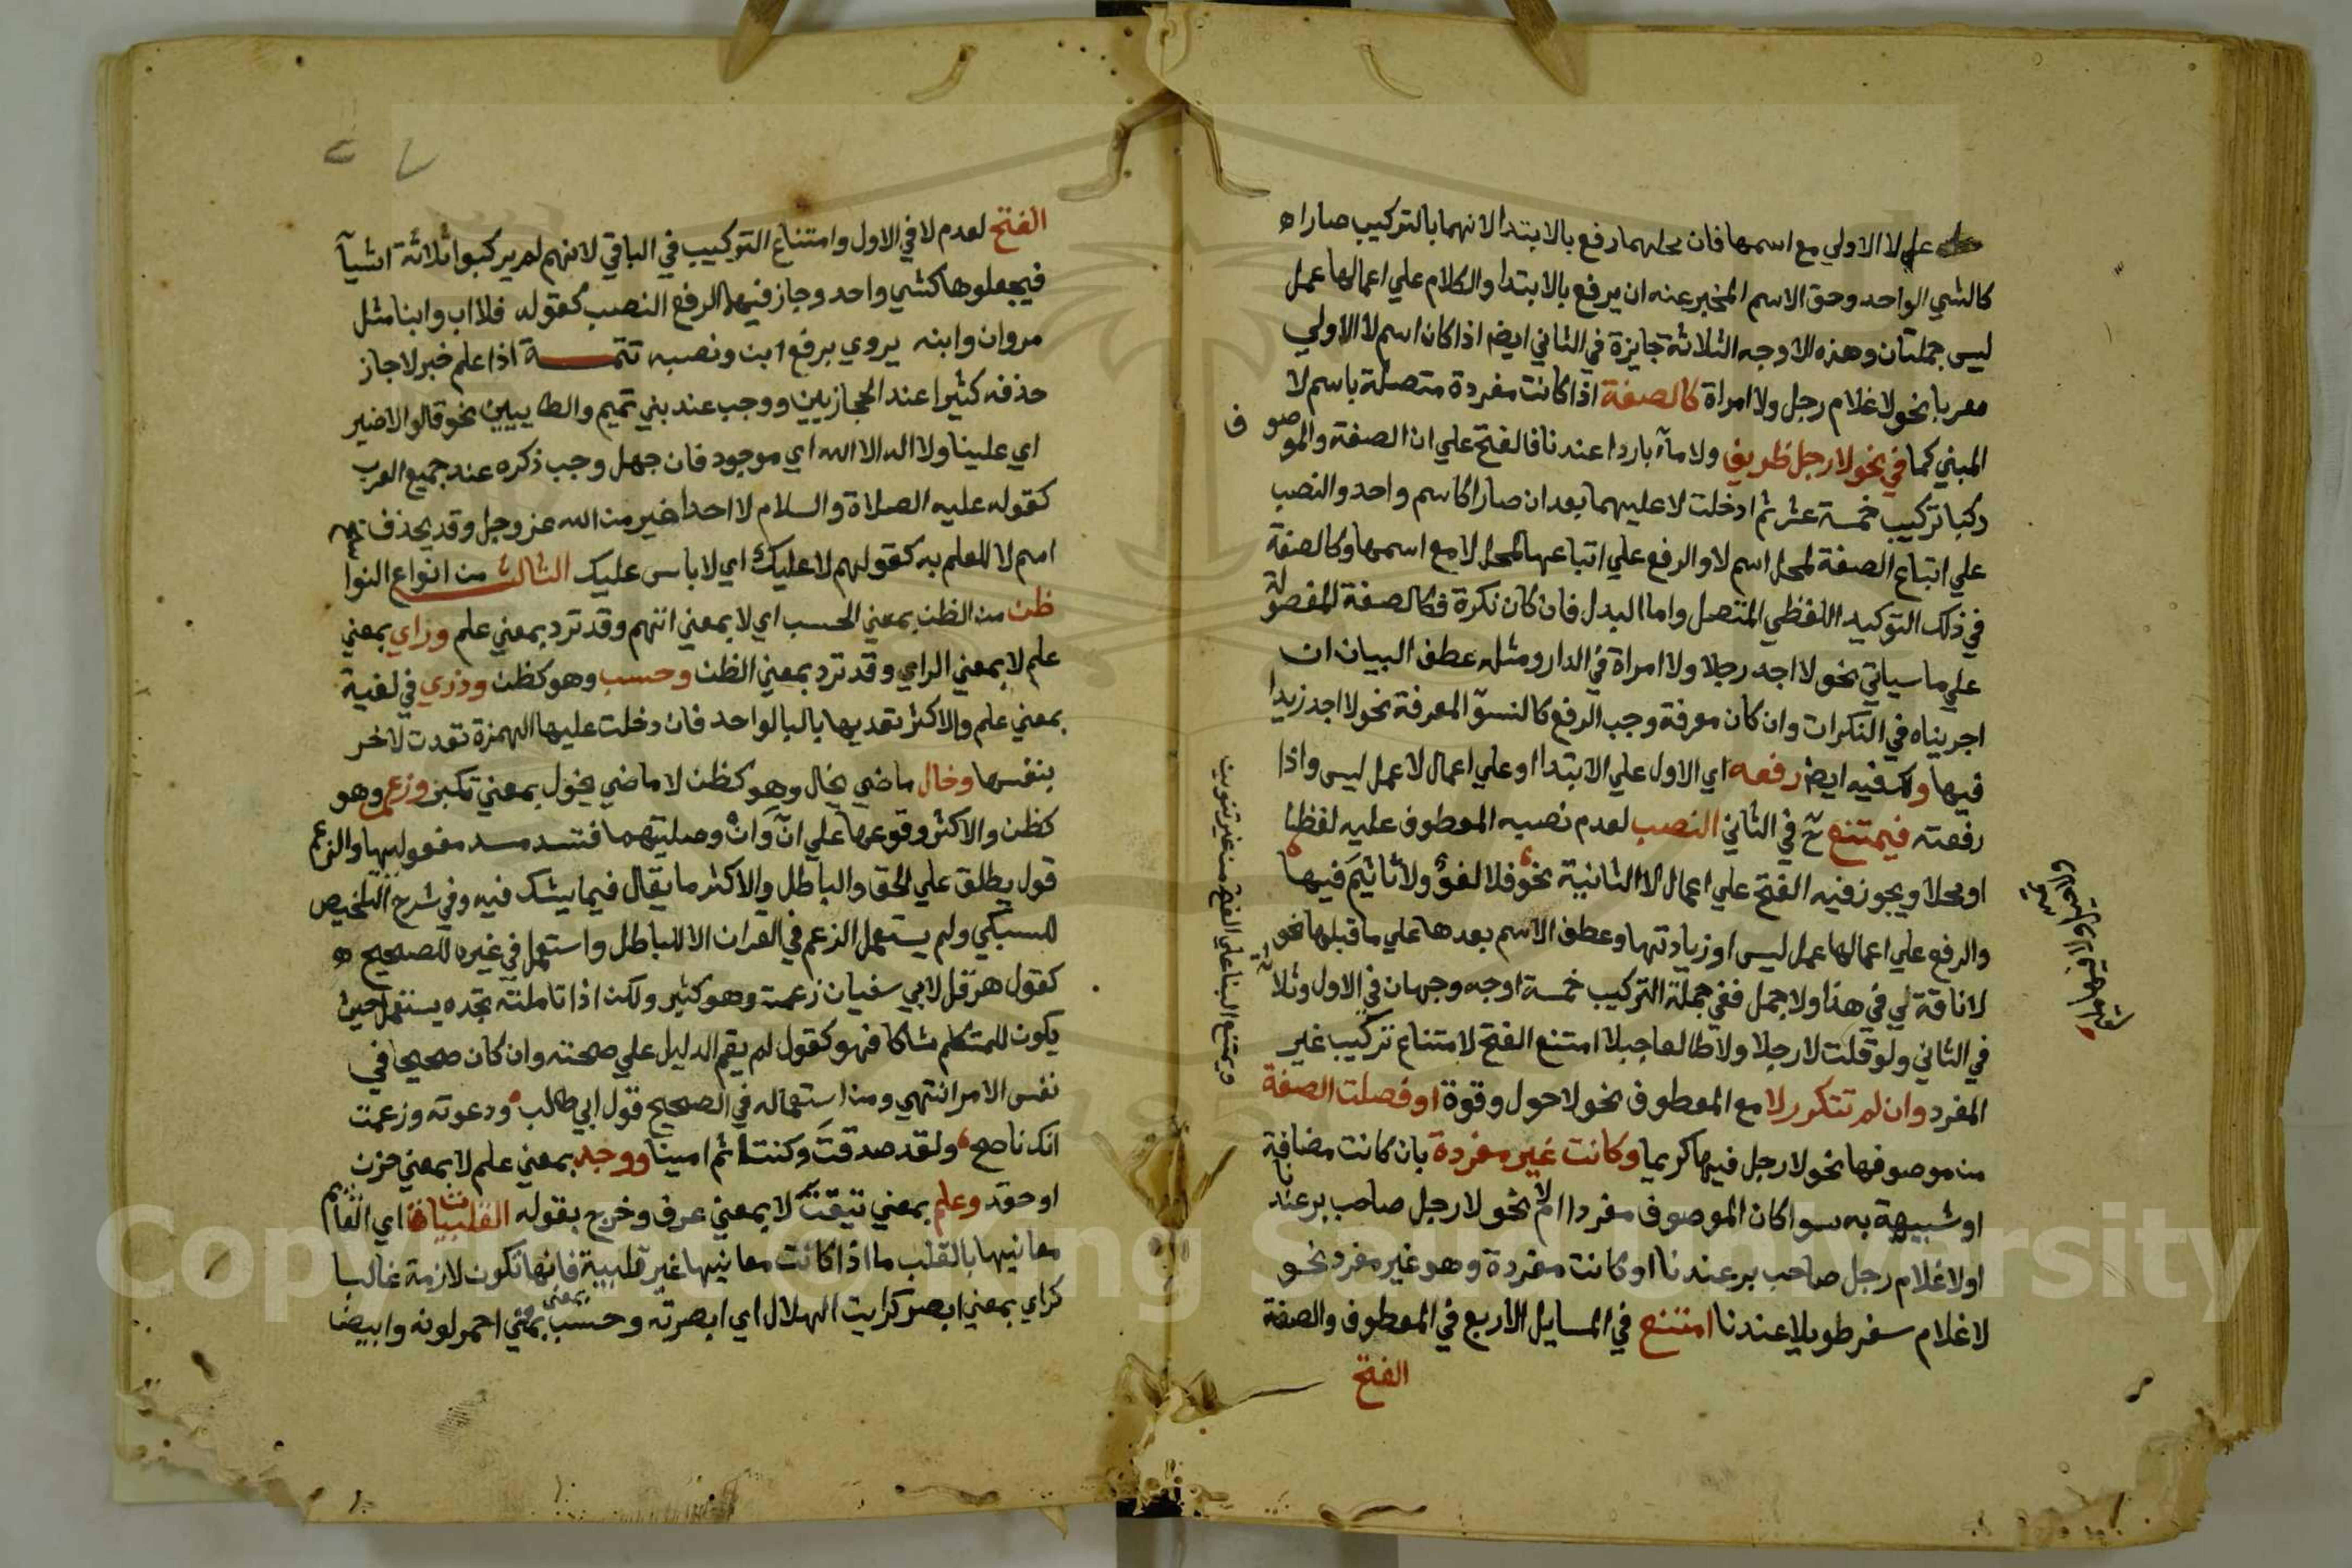 علي لا الاولي مع اسمها فان محلهما رفع بالابتدا لانهما بالتركيب صارا
كالشي الواحد وحق الاسم المخبر عنه ان يرفع بالابتدا والكلام علي اعمالها عمل
ليس جملتان وهذه الاوجه الثلاثة جايزة في الثاني ايضا اذا كان اسم لا الاولي
معربا نحو لا غلام رجل ولا امراة كالصفة اذا كانت مفردة متصلة باسم لا
المبني كما في نحو لا رجل ظريف ولا مآء باردا عندنا فالفتح علي ان الصفة والموصوف
ركبا تركيب خمسة عشر ثم ادخلت لا عليهما بعد ان صارا كاسم واحد والنصب
علي اتباع الصفة لمحل اسم لا والرفع علي اتباعها لمحل لا مع اسمها وكالصفة
في ذلك التوكيد اللفظي المتصل واما البدل فان كان نكرة فكالصفة المفصولة
علي ما سياتي نحو لا احد رجلا ولا امراة في الدار ومثله عطف البيان ان
اجريناه في النكرات وان كان معرفة وجب الرفع كالنسق المعرفة نحو لا احد زيدا
فيها ولك فيه ايضا رفعه اي الاول علي الابتدا او علي اعمال لا عمل ليس واذا
رفعته فيمتنع ح في الثاني النصب لعدم نصب المعطوف عليه لفظا
او محلا ويجوز فيه الفتح علي اعمال لا الثانية نحو فلا لغو ولا تاثيم فيها
والرفع علي اعمالها عمل ليس او زيادتها وعطف الاسم بعدها علي ما قبلها نحو
لا ناقة لي في هذا ولا جمل ففي جملة التركيب خمسة اوجه وجهان في الاول وثلاثة
في الثاني ولو قلت لا رجلا ولا طالعا جبلا امتنع الفتح لامتناع تركيب غير
المفرد وان لم تتكرر لا مع المعطوف نحو لا حول وقوة او فصلت الصفة
من موصوفها نحو لا رجل فيها كريما وكانت غير مفردة بان كانت مضافة
او شبيهة به سوا كان الموصوف مفردا ام لا نحو لا رجل صاحب بر عندنا
او لا غلام رجل صاحب بر عندنا او كانت مفردة وهو غير مفرد نحو
لا غلام سفر طويلا عندنا امتنع في المسايل الاربع في المعطوف والصفة
الفتح
ويمتنع البنا علي الفتح من غير تنوين
الفتح لعدم لا في الاول وامتناع التركيب في الباقي لانهم لم يركبوا ثلاثة اشيآ
فيجعلوها كشي واحد وجاز فيها الرفع النصب كقوله فلا اب وابنا مثل
مروان وابنه يروي برفع ابن ونصبه تتمة اذا علم خبر لا جاز
حذفه كثيرا عند الحجازيين ووجب عند بني تميم والطاييين نحو قالوا لا ضير
اي علينا ولا اله الا الله اي موجود فان جهل وجب ذكره عند جميع العرب
كقوله عليه الصلاة والسلام لا احد اخير من الله عز وجل وقد يحذف
اسم لا للعلم به كقولهم لا عليك اي لا باس عليك الثالث من انواع النوا
ظن من الظن بمعني الحسب اي لا بمعني اتهم وقد ترد بمعني علم وراي بمعني
علم لا بمعني الراي وقد ترد بمعني الظن وحسب وهو كظن ودري في لغية
بمعني علم والاكثر تعديها بالبا لواحد فان دخلت عليها الهمزة تعدت لاخر
بنفسها وخال ماضي يخال وهو كظن لا ماضي يخول بمعني تكبر وزعم وهو
كظن والاكثر وقوعها علي انّ وانْ وصليتهما فتسد مسد مفعوليها والزعم
قول يطلق علي الحق والباطل والاكثر ما يقال فيما يشك فيه وفي شرح التلخيص
للسبكي ولم يستعمل الزعم في القران الا للباطل واستعمل في غيره للصحيح
كقول هرقل لابي سفيان زعمت وهو كثير ولكن اذا تاملته تجده يستعمل حيث
يكون للمتكلم شاكا فهو كقول لم يقم الدليل علي صحته وان كان صحيحا في
نفس الامر انتهي ومن استعماله في الصحيح قول ابي طالب ودعوته وزعمت
انك ناصح ولقد صدقت وكنت ثم امينا ووجد بمعني علم لا بمعني حزن
او حقد وعلم بمعني تيقنت لا بمعني عرف وخرج بقوله القلبيات اي القايم
معانيها بالقلب ما اذا كانت معانيها غير قلبية فانها تكون لازمة غالبا
كراي بمعني ابصر كرايت الهلال اي ابصرته وحسب بمعني احمر لونه وابيضا